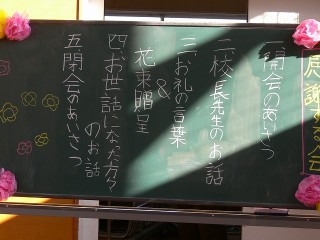 感謝する会
一 開会のあいさつ
二 校長先生のお話
三 お礼の言葉
&
花束贈呈
四 お世話になった方々
のお話
五 閉会のあいさつ